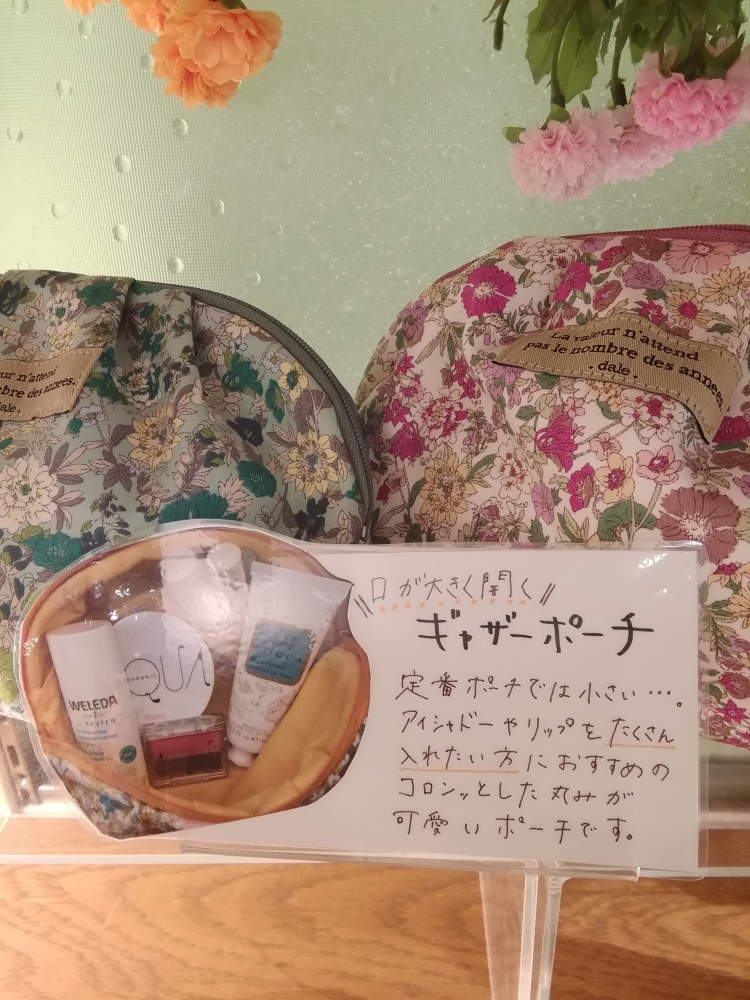 La valeur n'attend
pas le nombre des annees.
dale.
ur n'attend
bre des annees.
dale.
\\口が大きく開く//
ギャザーポーチ
定番ポーチでは小さい…。
アイシャドーやリップをたくさん
入れたい方におすすめの
コロンッとした丸みが
可愛いポーチです。
WELEDA
TESTER
ORGANIC